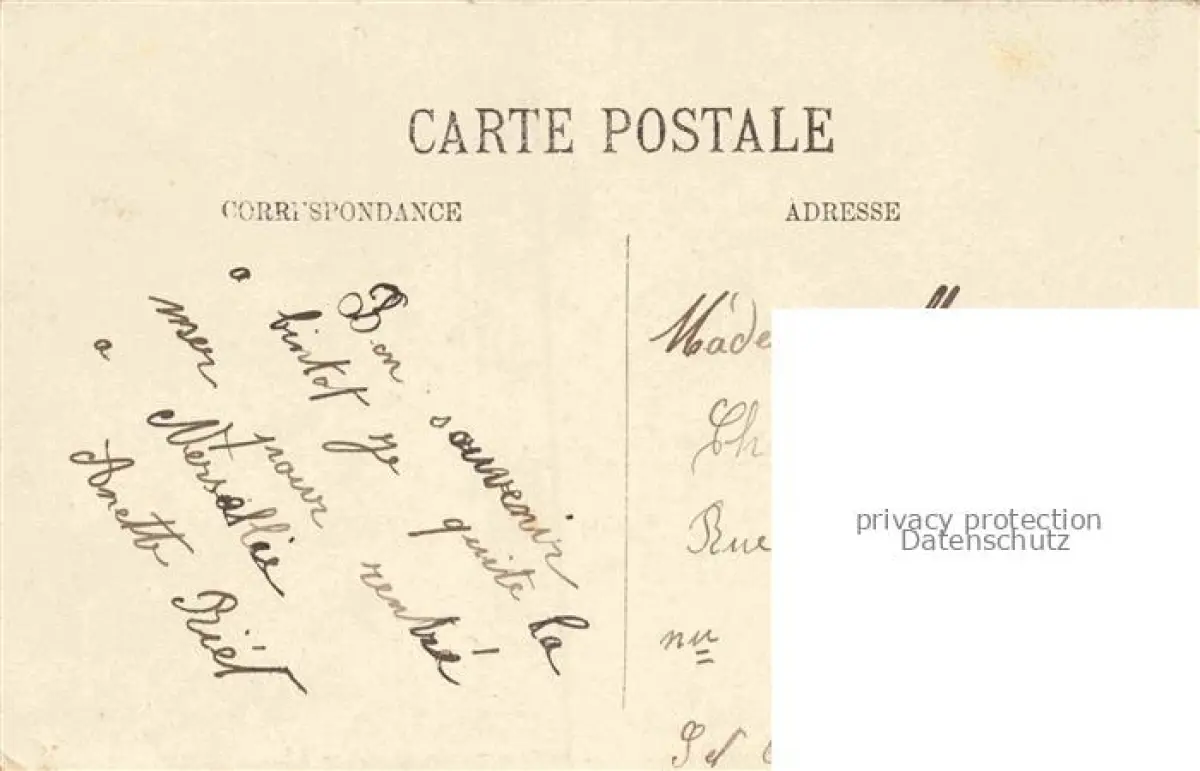 CARTE POSTALE
CORRESPONDANCE
ADRESSE
Bon souvenir
a bintot je quite la
mer pour rentré
a Versallie
Anette
Made
Ch
Rue
nu
privacy protection
Datenschutz